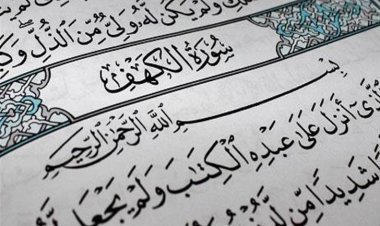 وَلَمْ يَكُن لَّهُۥ وَلِىٌّ مِّنَ ٱلذُّلِّ
سُورَةُ الْكَهْفِ
بِسْمِ ٱللَّهِ ٱلرَّحْمَٰنِ ٱلرَّحِيمِ
أَنزَلَ عَلَىٰ عَبْدِهِ ٱلْكِتَٰبَ وَلَمْ يَجْعَل
شَدِيدًا مِّن